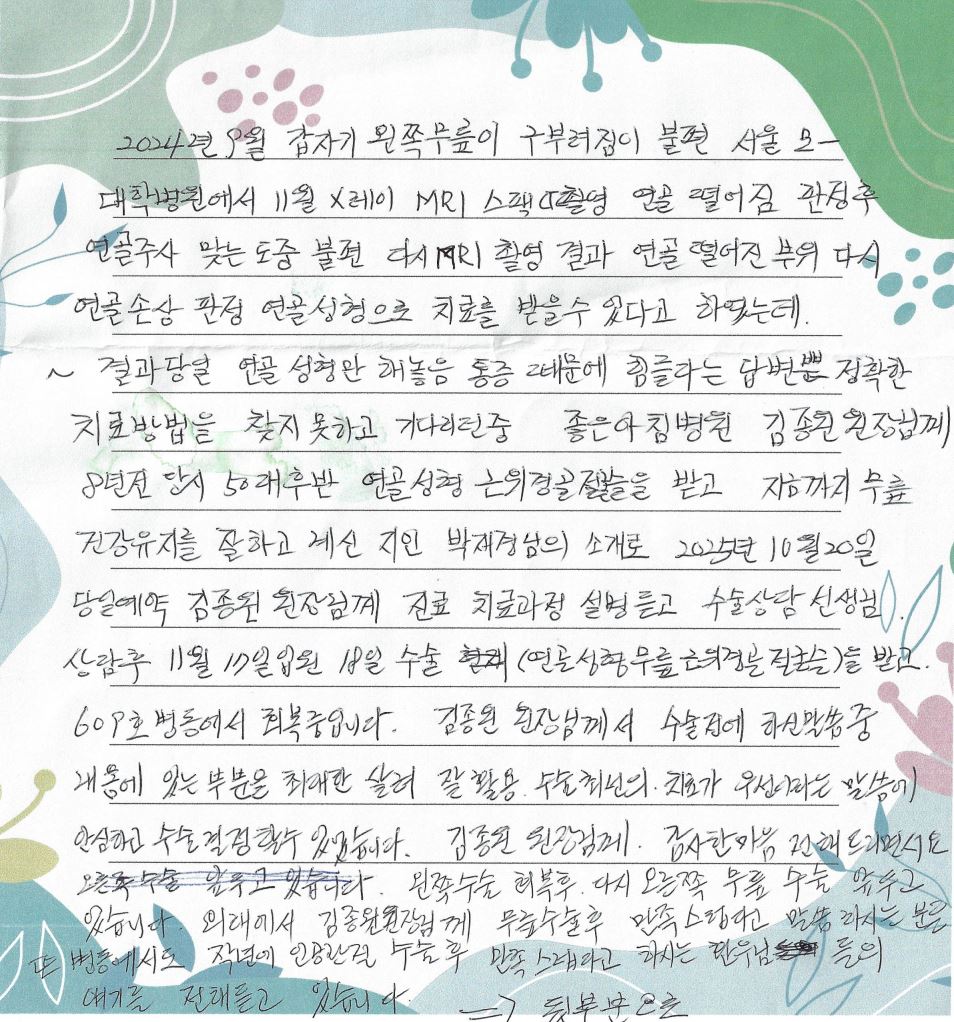 2024년 9월 갑자기 왼쪽무릎이 구부려짐이 불편 서울 모-
대학병원에서 11월 X레이 MRI 스팩CT촬영 연골 떨어짐 판정후
연골주사 맞는도중 불편 다시MRI 촬영 결과 연골 떨어진 부위 다시
연골손상 판정 연골성형으로 치료를 받을수 있다고 하였는데.
~ 결과당일 연골 성형만 해놓음 통증 때문에 힘들다는 답변뿐 정확한
치료방법을 찾지못하고 기다리던중 좋은아침병원 김종원 원장님께
8년전 당시 50대후반 연골성형 근위경골절골술을 받고 지금까지 무릎
건강유지를 잘하고 계신 지인 박재경님의 소개로 2025년 10월20일
당일예약 김종원 원장님께 진료 치료과정 설명듣고 수술상담 선생님.
상담후 11월 17일입원 18일 수술 (연골성형무릎근위경골절골술)을 받고.
609호 병동에서 회복중입니다. 김종원 원장님께서 수술전에 하신말씀중
내몸에 있는부분을 최대한 살려 잘 활용. 수술최선의. 치료가 우선이라는 말씀에
안심하고 수술결정할수 있었습니다. 김종원 원장님께. 감사한마음 전해드리면서요
오른쪽 수술 앞두고 있습니다. 왼쪽수술 회복후. 다시 오른쪽 무릎 수술 앞두고
있습니다. 외래에서 김종원원장님께 무릎수술후 만족스럽다고 말씀하시는 분들
또 병동에서도 작년에 인공관절 수술후 만족스럽다고 하시는 환우님 들의
얘기를 전해듣고 있습니다. => 뒷부분으로